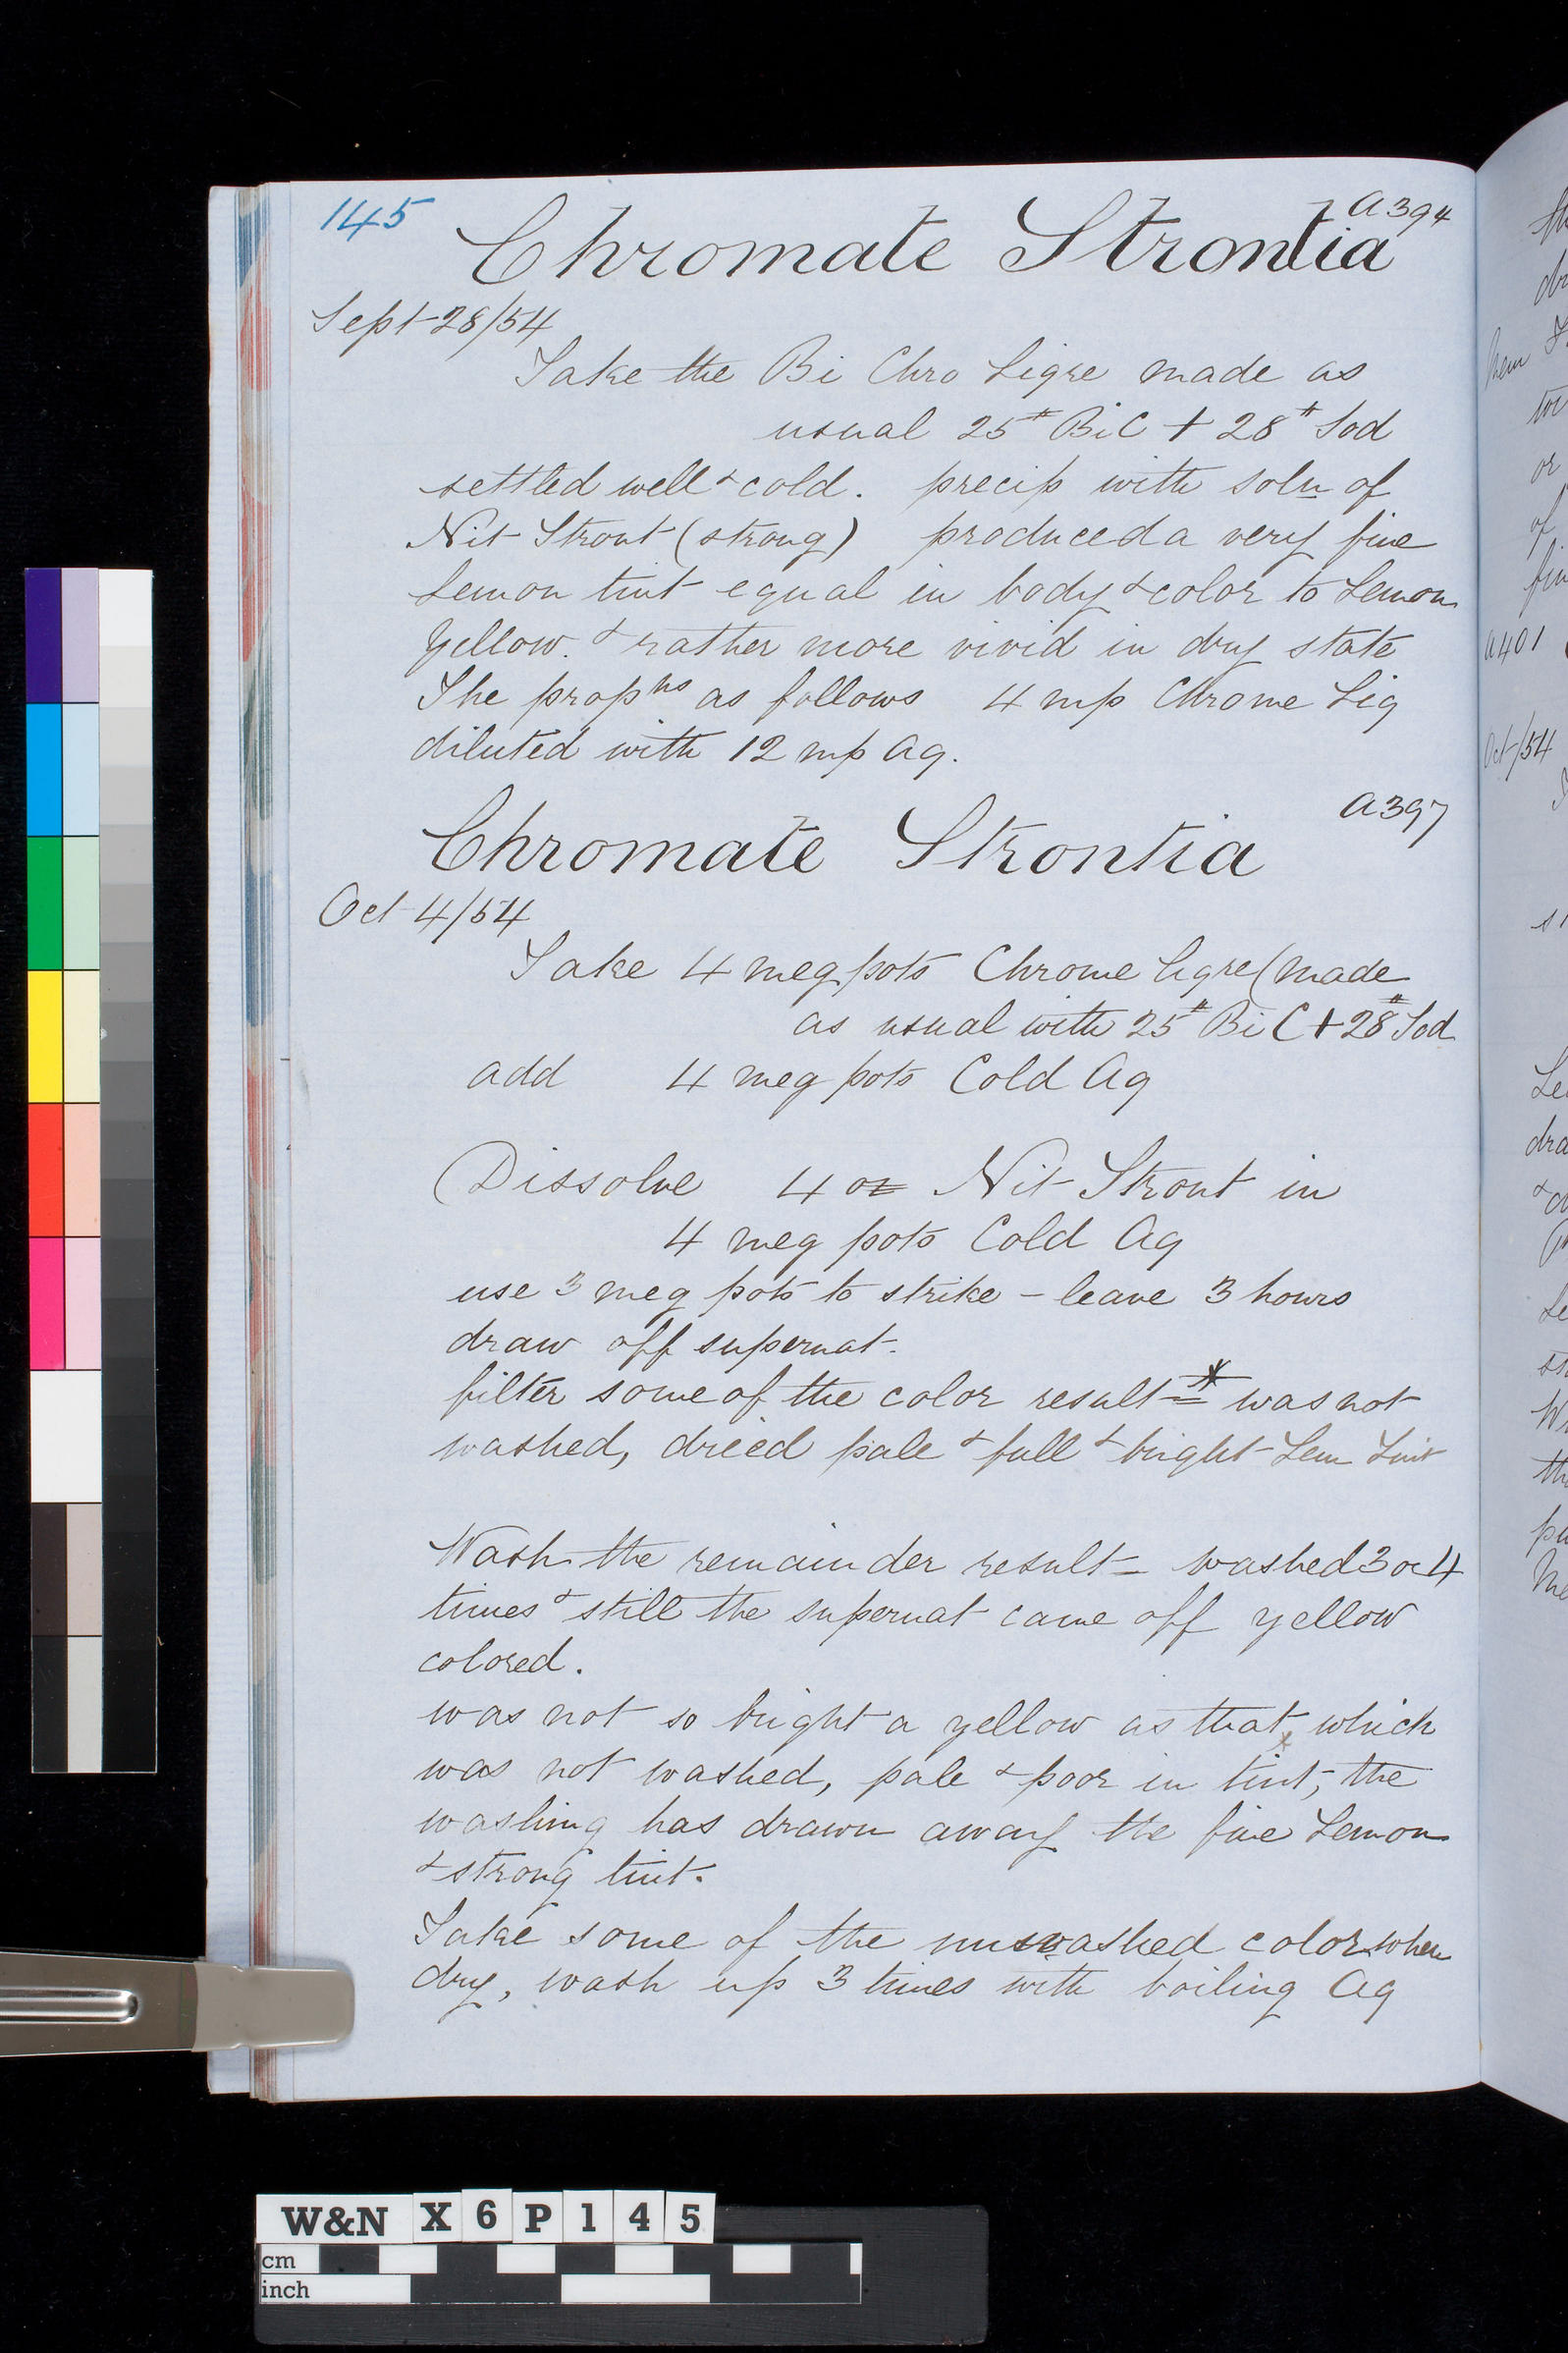 145
A394
Chromate Strontia
Sept 28/54
Take the Bi Chro Liqre made as
usual 25# BiC + 28# Sod
settled well & cold. precip with soln of
Nit Stront (strong) produced a very fine
Lemon tint equal in body & color to Lemon
Yellow. & rather more vivid in dry state
The propns as follows 4 mp Chrome Liq
diluted with 12 mp Aq.
A397
Chromate Strontia
Oct 4/54
Take 4 meg pots Chrome liqre (made
as usual with 25# BiC + 28# Sod
add 4 meg pots Cold Aq
Dissolve 4 oz Nit Stront in
4 meg pots Cold Aq
use 3 meg pots to strike - leave 3 hours
draw off supernat.
filter some of the color result = * was not
washed, dried pale & full & bright Lem Tint
Wash the remainder result = washed 3 or 4
times & still the supernat came off yellow
colored.
was not so bright a yellow as that x which
was not washed, pale & poor in tint, the
washing has drawn away the fine Lemon
& strong tint.
Take some of the unwashed color when
dry, wash up 3 times with boiling Aq
A401
Oct/54
W&N X 6 P 1 4 5
cm
inch